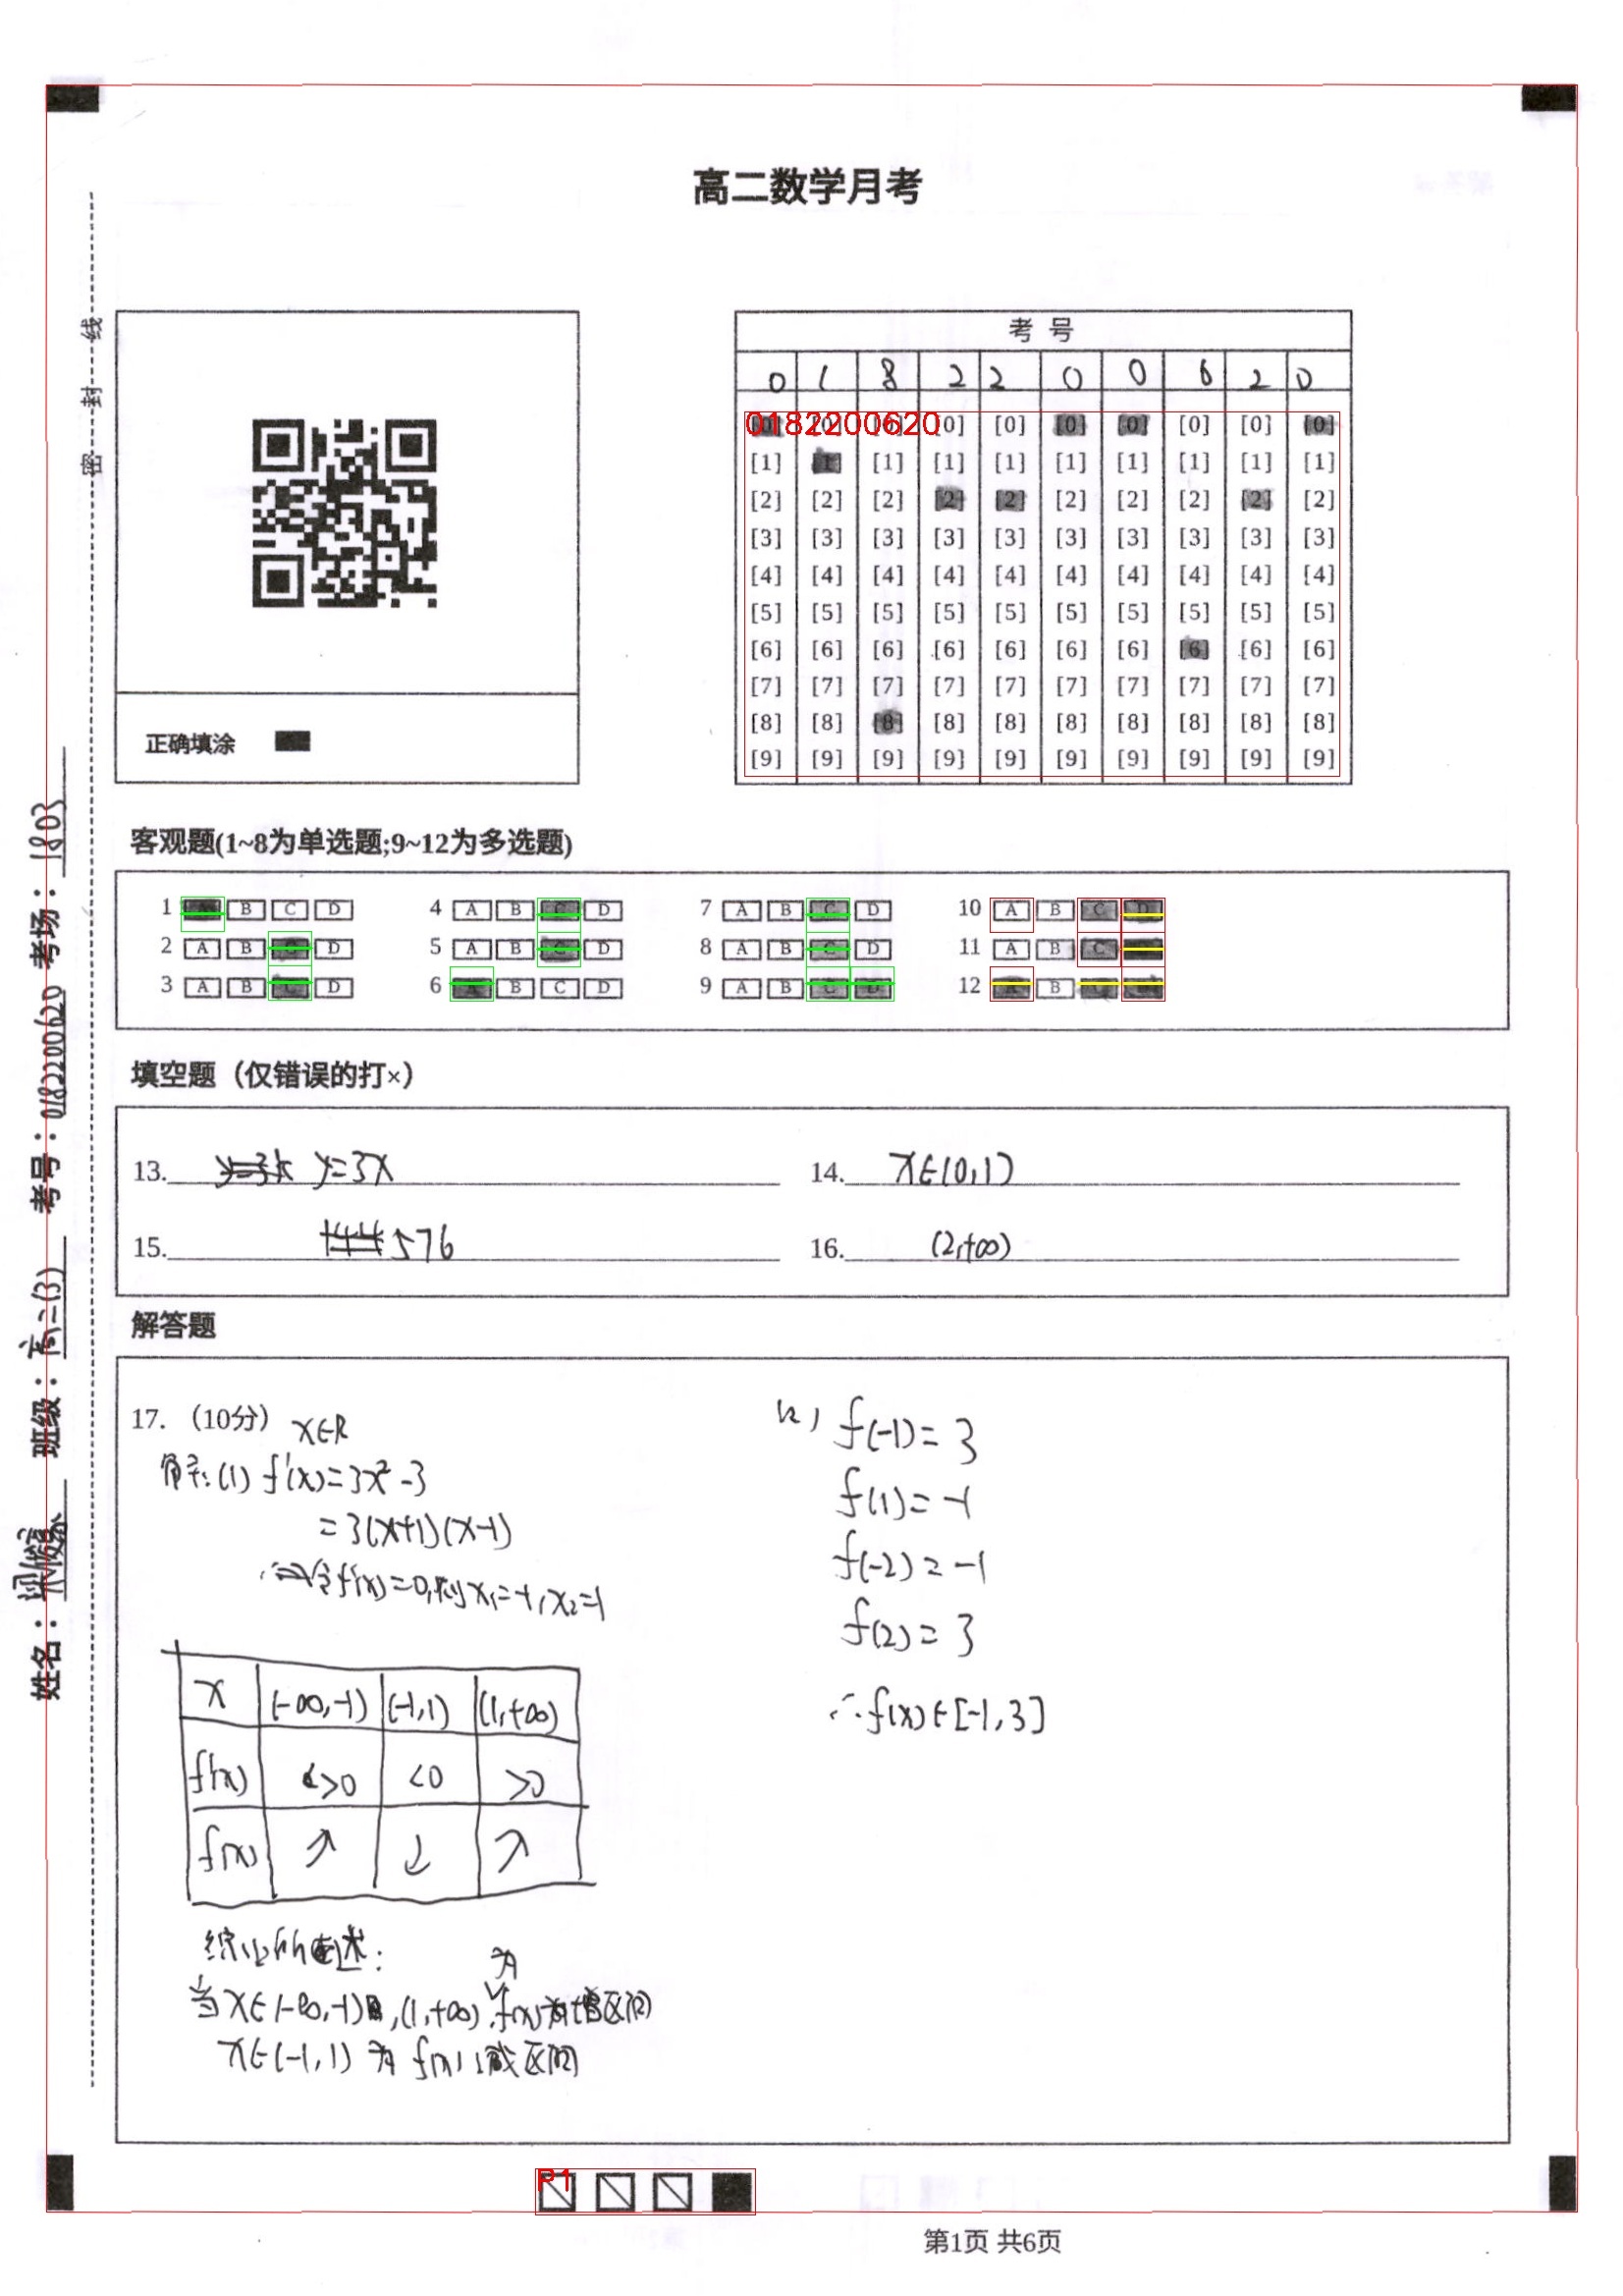 高二数学月考
密 封 线
姓名：梁俊豪 班级：高二(3) 考号：0182200620 考场：1803
正确填涂
考 号
0 1 8 2 2 0 0 6 2 0
0182200620
[0] [0] [0] [0] [0] [0] [0] [0] [0] [0]
[1] [1] [1] [1] [1] [1] [1] [1] [1] [1]
[2] [2] [2] [2] [2] [2] [2] [2] [2] [2]
[3] [3] [3] [3] [3] [3] [3] [3] [3] [3]
[4] [4] [4] [4] [4] [4] [4] [4] [4] [4]
[5] [5] [5] [5] [5] [5] [5] [5] [5] [5]
[6] [6] [6] [6] [6] [6] [6] [6] [6] [6]
[7] [7] [7] [7] [7] [7] [7] [7] [7] [7]
[8] [8] [8] [8] [8] [8] [8] [8] [8] [8]
[9] [9] [9] [9] [9] [9] [9] [9] [9] [9]
客观题(1~8为单选题;9~12为多选题)
1 A B C D 4 A B C D 7 A B C D 10 A B C D
2 A B C D 5 A B C D 8 A B C D 11 A B C D
3 A B C D 6 A B C D 9 A B C D 12 A B C D
填空题（仅错误的打×）
13. y=3x 14. x∈(0,1)
15. 576 16. (2,+∞)
解答题
17.（10分） x∈R
解:(1) f'(x)=3x²-3
=3(x+1)(x-1)
令f'(x)=0,则x₁=-1,x₂=1
x (-∞,-1) (-1,1) (1,+∞)
f'(x) >0 <0 >0
f(x) ↗ ↓ ↗
综上所述:
当x∈(-∞,-1),(1,+∞)为f(x)增区间
x∈(-1,1) 为 f(x)减区间
(2) f(-1)=3
f(1)=-1
f(-2)=-1
f(2)=3
∴f(x)∈[-1,3]
P1
第1页 共6页